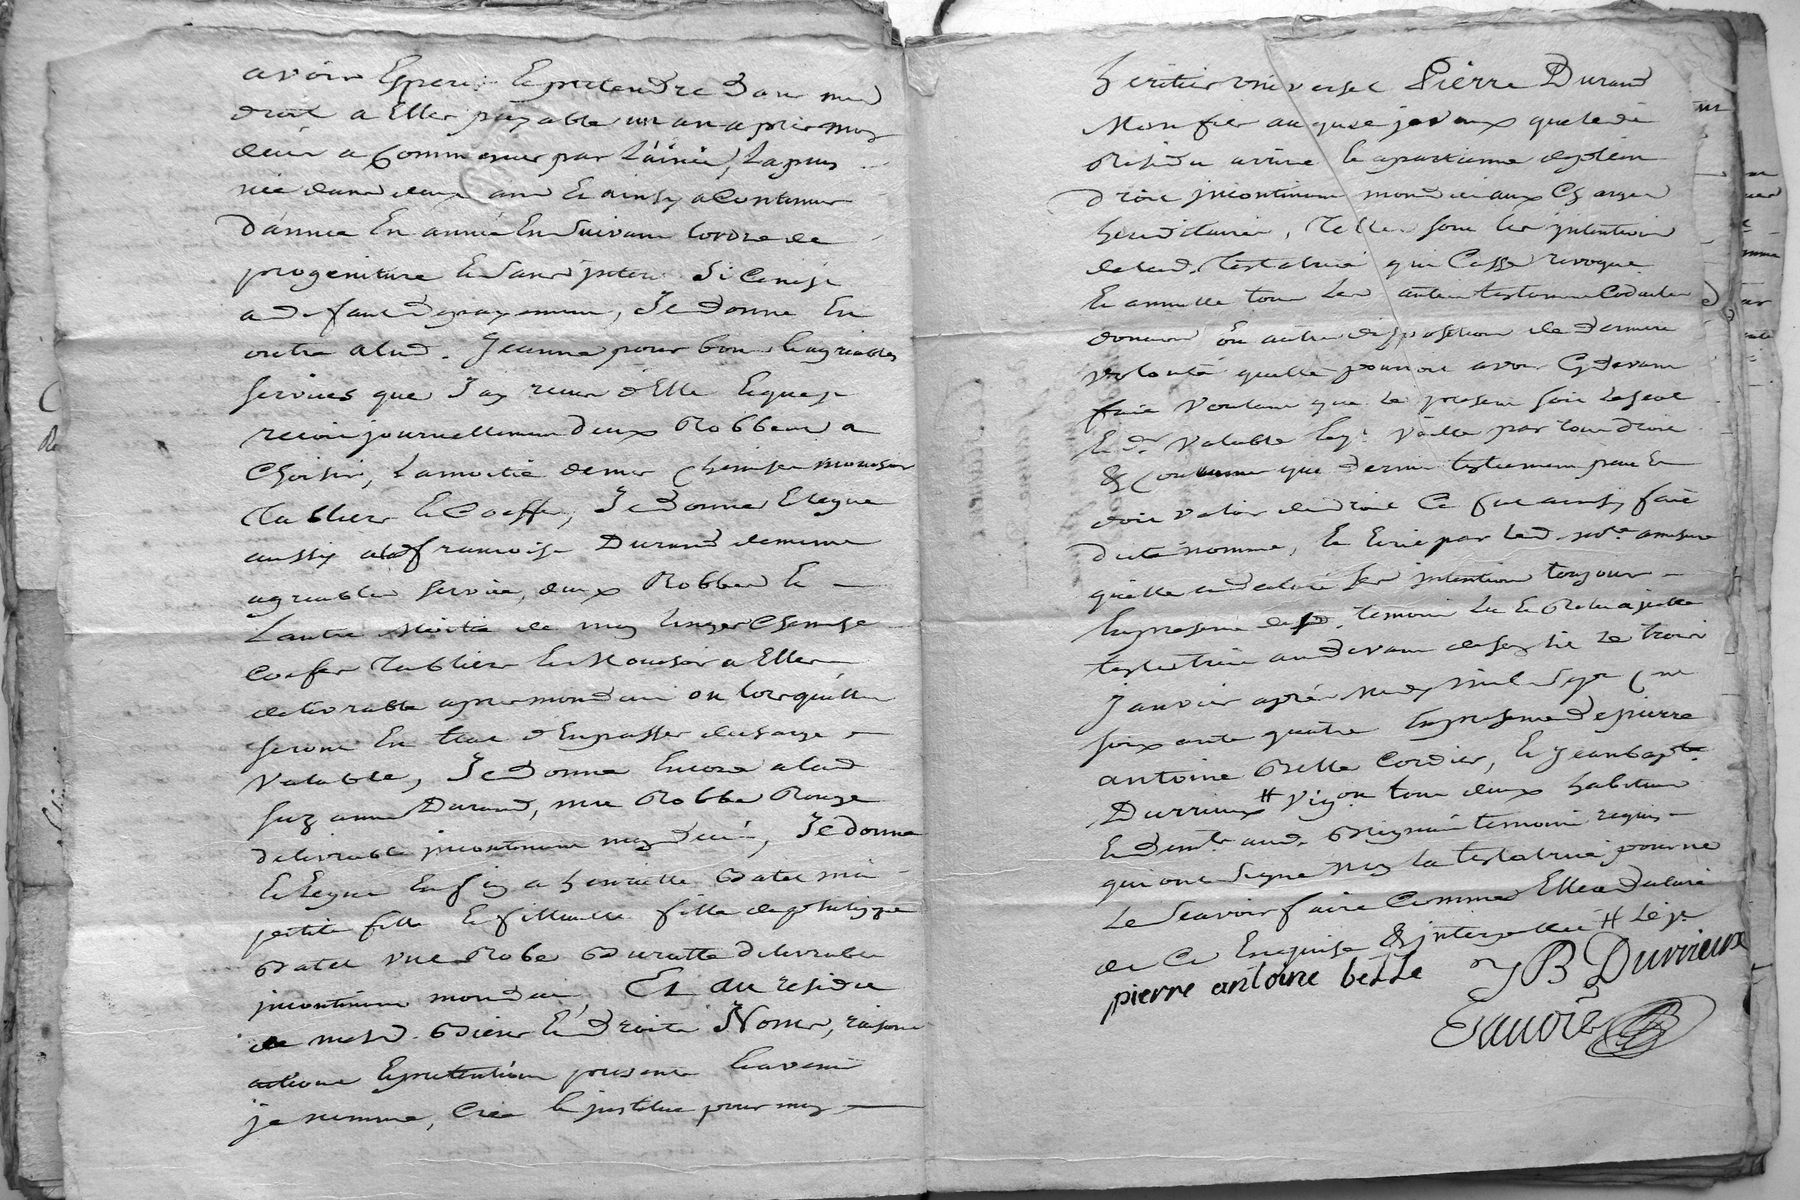 avoir Esperer & pretendre dans mesd
droit a Elles payable un an apres mon
déces a Commencer par L'ainée, La puis
née dans deux ans & ainsy a Continuer
D'année En année En Suivant lordre de
progeniture & Sans jnteret Si Cenest
a defaut de payement, Je donne En
outre alad. Jeanne pour bons & agreables
services que J'ay receu d'Elle & que je
recois journellement deux Robbes a
Choisir, La moitié de mes Chemises mouchoirs
Tabliers & Coeffes, Je donne & legue
aussy alad françoise Durand de meme
agreables services, deux Robbes &
Lautre Moitié de mes linges Chemise
Coefes Tabliers & Mouchoirs a Elles
delivrable apres mon deces ou lors quelles
seront En Etat d'En passer decharge
Valable, Je donne Encore alad
Suzanne Durand, une Robbe Rouge
delivrable jncontinent mon deces, Je donne
& legue Enfin a henriette Batet ma
petite fille & filleulle fille de philippe
Batet une Robe Burette delivrable
jncontinent mon deces, Et du residu
de mesd. Biens & droits Noms, raisons
actions & pretentions presents & avenir
je nomme, Crée & jnstitue pour mon
héritier universel Pierre Durand
Mon fils auquel je veux que ledit
Residu arrive & apartienne de plein
droit jncontinent mon deces aux Charges
hereditaires, Telles sont les jntentions
de lad. Testatrice qui Casse revoque
& annulle tous Les autres testaments Codicilles
donations ou autres disposition de derniere
volonté quelle pourroit avoir Cy devant
faite Voulant que Le present soit Le seul
& Valable & quil Vaille par tout droit
& Coutume que dernier testament peut &
doit valoir de droit Ce fut ainsy fait
dicté nommé, & Ecrit par led. no.re a mesure
quelle a declaré ses jntentions toujours
En presence desd. temoins Lu & Relu a jcelle
testatrice au devant de son lit Le trois
Janvier aprés Midy mil Sept Cent
soixante quatre En presence de pierre
antoine Belle Cordier, & Jean bapt.te
Durrieux # Vigon tous deux habitans
temoins requis
qui ont Signé non la testatrice pour ne
Le Scavoir faire Comme Elle a declaré
de Ce Enquise & jnterpellée # Le jr
pierre antoine belle JB Durrieux